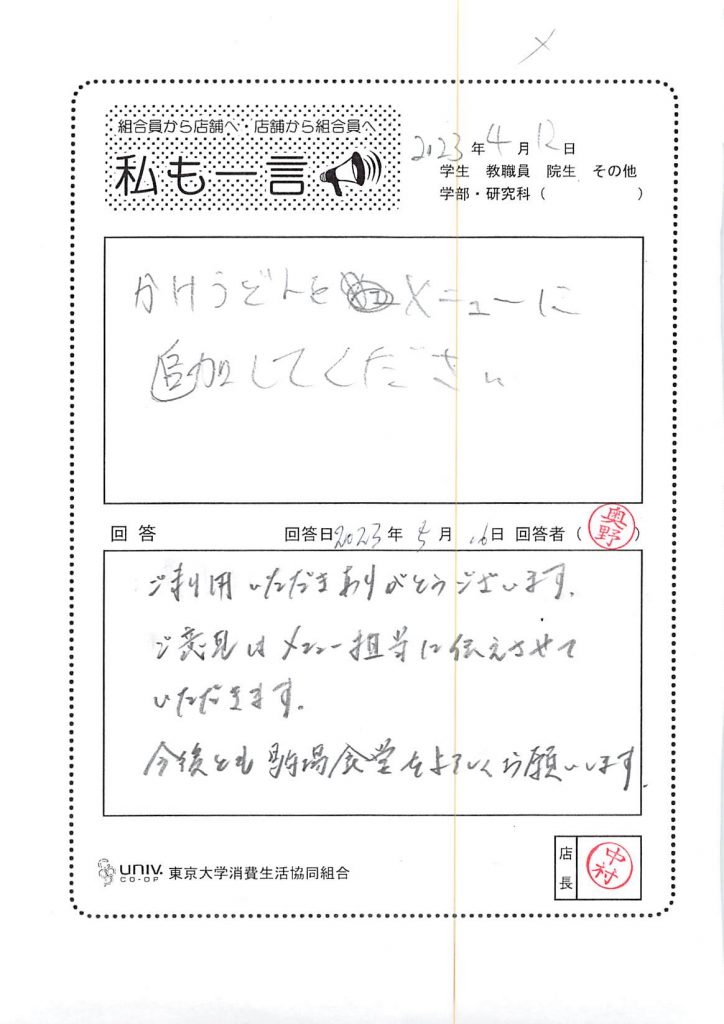 組合員から店舗へ・店舗から組合員へ
私も一言
2023年4月12日
学生 教職員 院生 その他
学部・研究科（　　　）
かけうどんをメニューに
追加してください
回答 回答日2023年5月16日 回答者（奥野）
ご利用いただきありがとうございます.
ご意見はメニュー担当に伝えさせて
いただきます.
今後とも駒場食堂をよろしくお願いします.
UNIV. CO-OP 東京大学消費生活協同組合
店長 中村